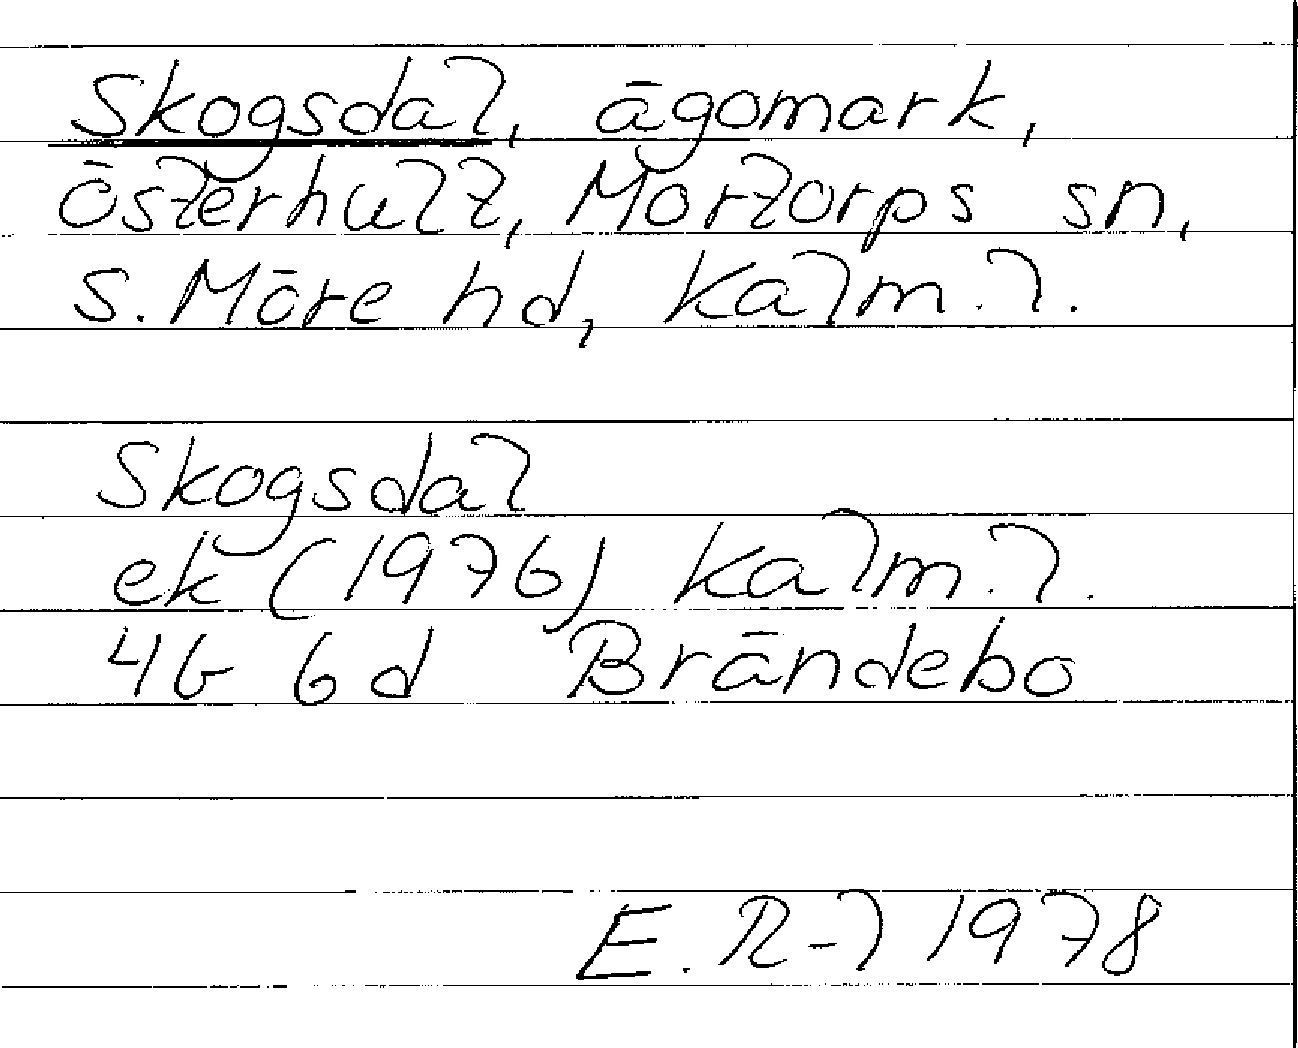 Skogsdal, ägomark,
Österhult, Mortorps sn,
S. Möre hd, Kalm. l.
Skogsdal
ek (1976) Kalm. l.
4G 6d Brändebo
E. R-l 1978